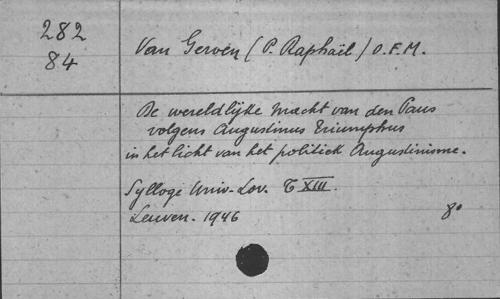 282
84
Van Gerven (P. Raphaël) O.F.M.
De wereldlijke macht van den Paus
volgens Augustinus Triumphus
in het licht van het politiek Augustinisme.
Sylloge Univ. Lov. T XIII.
Leuven. 1946 8°